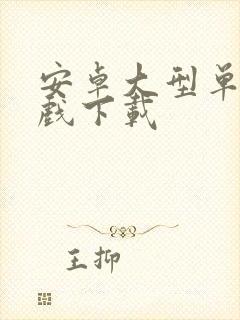 安卓大型单
戏下载
王抑